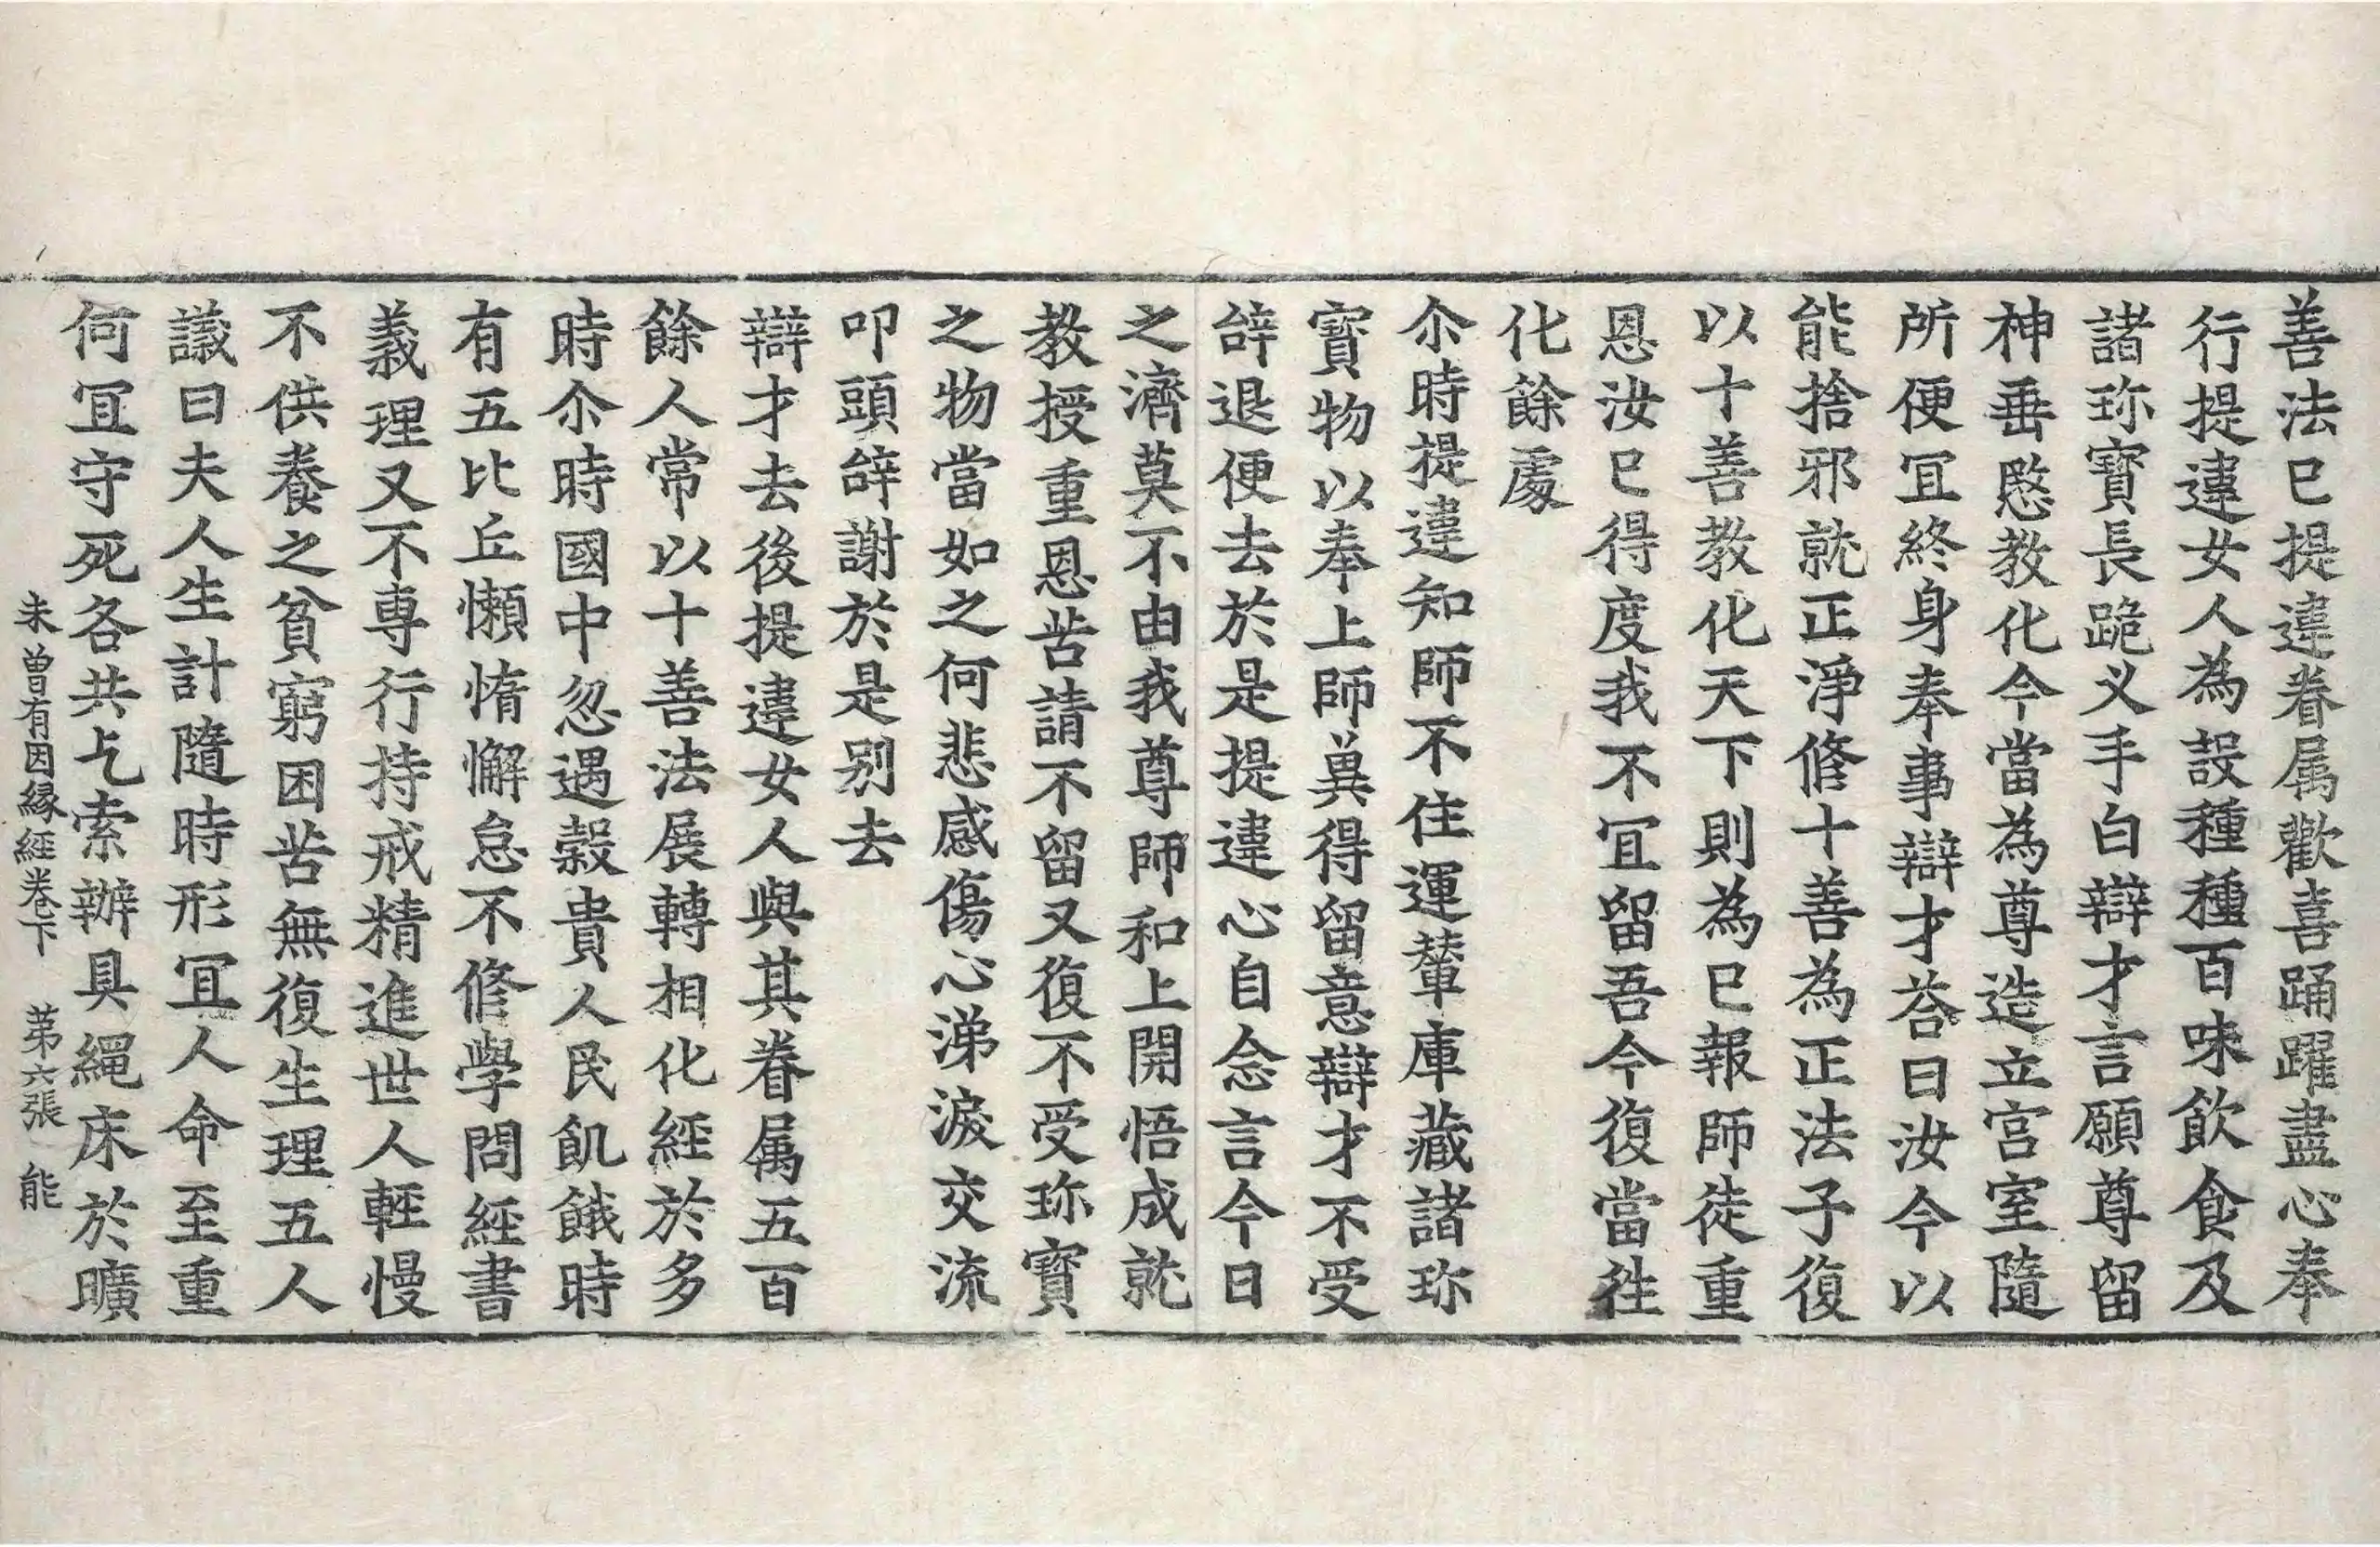 善法已提違眷属歡喜踊躍盡心奉
行提違女人為設種種百味飲食及
諸珎寶長跪义手白辯才言願尊留
神垂愍教化今當為尊造立宫室隨
所便冝終身奉事辯才荅曰汝今以
能捨邪就正淨修十善為正法子復
以十善教化天下則為已報師徒重
恩汝已得度我不冝留吾今復當往
化餘處
尒時提違知師不住運輦庫藏諸珎
寶物以奉上師兾得留意辯才不受
辝退便去於是提違心自念言今日
之濟莫不由我尊師和上開悟成就
教授重恩苦請不留又復不受珎寶
之物當如之何悲感傷心涕淚交流
叩頭辝謝於是别去
辯才去後提違女人與其眷属五百
餘人常以十善法展轉相化經於多
時尒時國中忽遇穀貴人民飢餓時
有五比丘懶惰懈怠不修學問經書
義理又不専行持戒精進世人輕慢
不供養之貧窮困苦無復生理五人
議曰夫人生計隨時形冝人命至重
何冝守死各共乞索辦具繩床於曠
未曾有因縁經卷下 苐六張 能